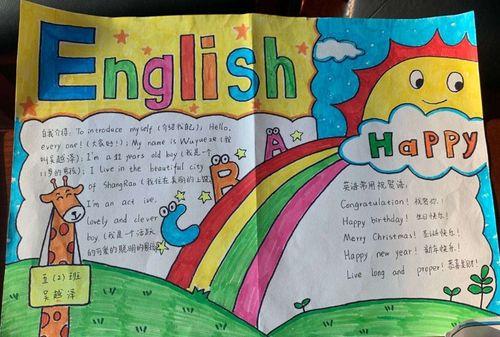 English
自我介绍: To introduce myself (介绍我自己), Hello,
every one! (大家好!); My name is Wuyueze (我
叫吴越泽); I'm a 11 years old boy (我是一个
11岁的男孩); I live in the beautiful city
of ShangRao (我住在美丽的上饶
I'm an active,
lovely and clever
boy (我是一个活跃
的可爱的聪明的男孩
五(2)班
吴越泽
A
B
C
HAPPY
英语常用祝贺语:
Congratulation! 祝贺你!
Happy birthday! 生日快乐!
Merry Christmas! 圣诞快乐!
Happy new year! 新年快乐!
Live long and proper! 恭喜发财!